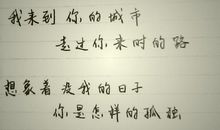 我来到 你的城市
走过你来时的路
想象着 没我的日子
你是怎样的孤独